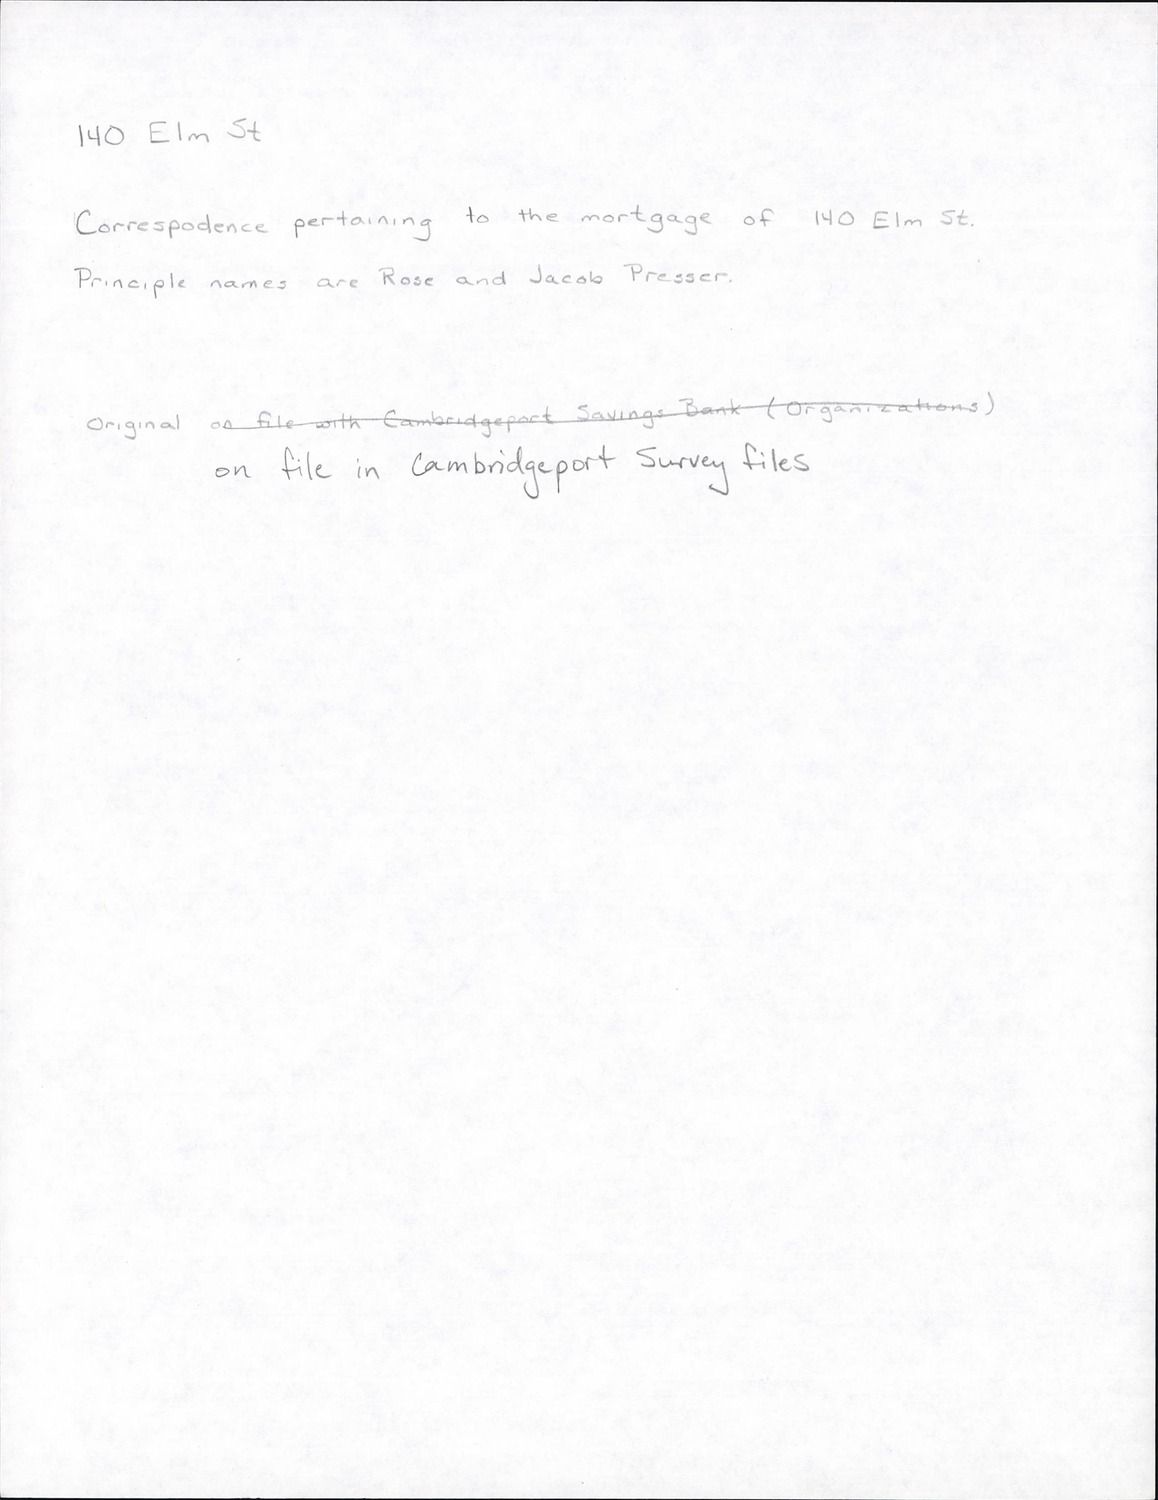 140 Elm St
Correspodence pertaining to the mortgage of 140 Elm St.
Principle names are Rose and Jacob Presser.
Original on file with Cambridgeport Savings Bank (Organizations)
on file in Cambridgeport Survey files